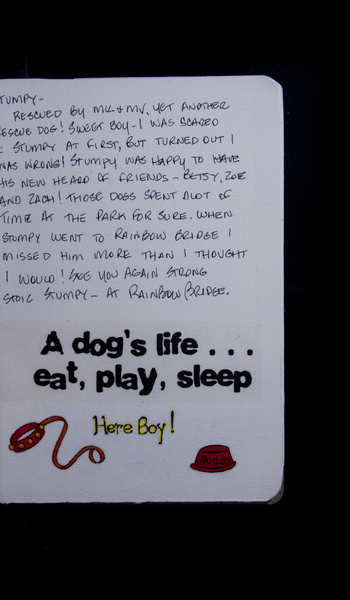 TUMPY-
RESCUED BY MK & MV, YET ANOTHER
ESCUE DOG! SWEET BOY-I WAS SCARED
F STUMPY AT FIRST, BUT TURNED OUT I
WAS WRONG! STUMPY WAS HAPPY TO HAVE
HIS NEW HEARD OF FRIENDS - BETSY, ZOE
AND ZACH! THOSE DOGS SPENT ALOT OF
TIME AT THE PARK FOR SURE. WHEN
STUMPY WENT TO RAINBOW BRIDGE I
MISSED HIM MORE THAN I THOUGHT
I WOULD! SEE YOU AGAIN STRONG
STOIC STUMPY - AT RAINBOW BRIDGE.
A dog's life . . .
eat, play, sleep
Here Boy!
Buddy